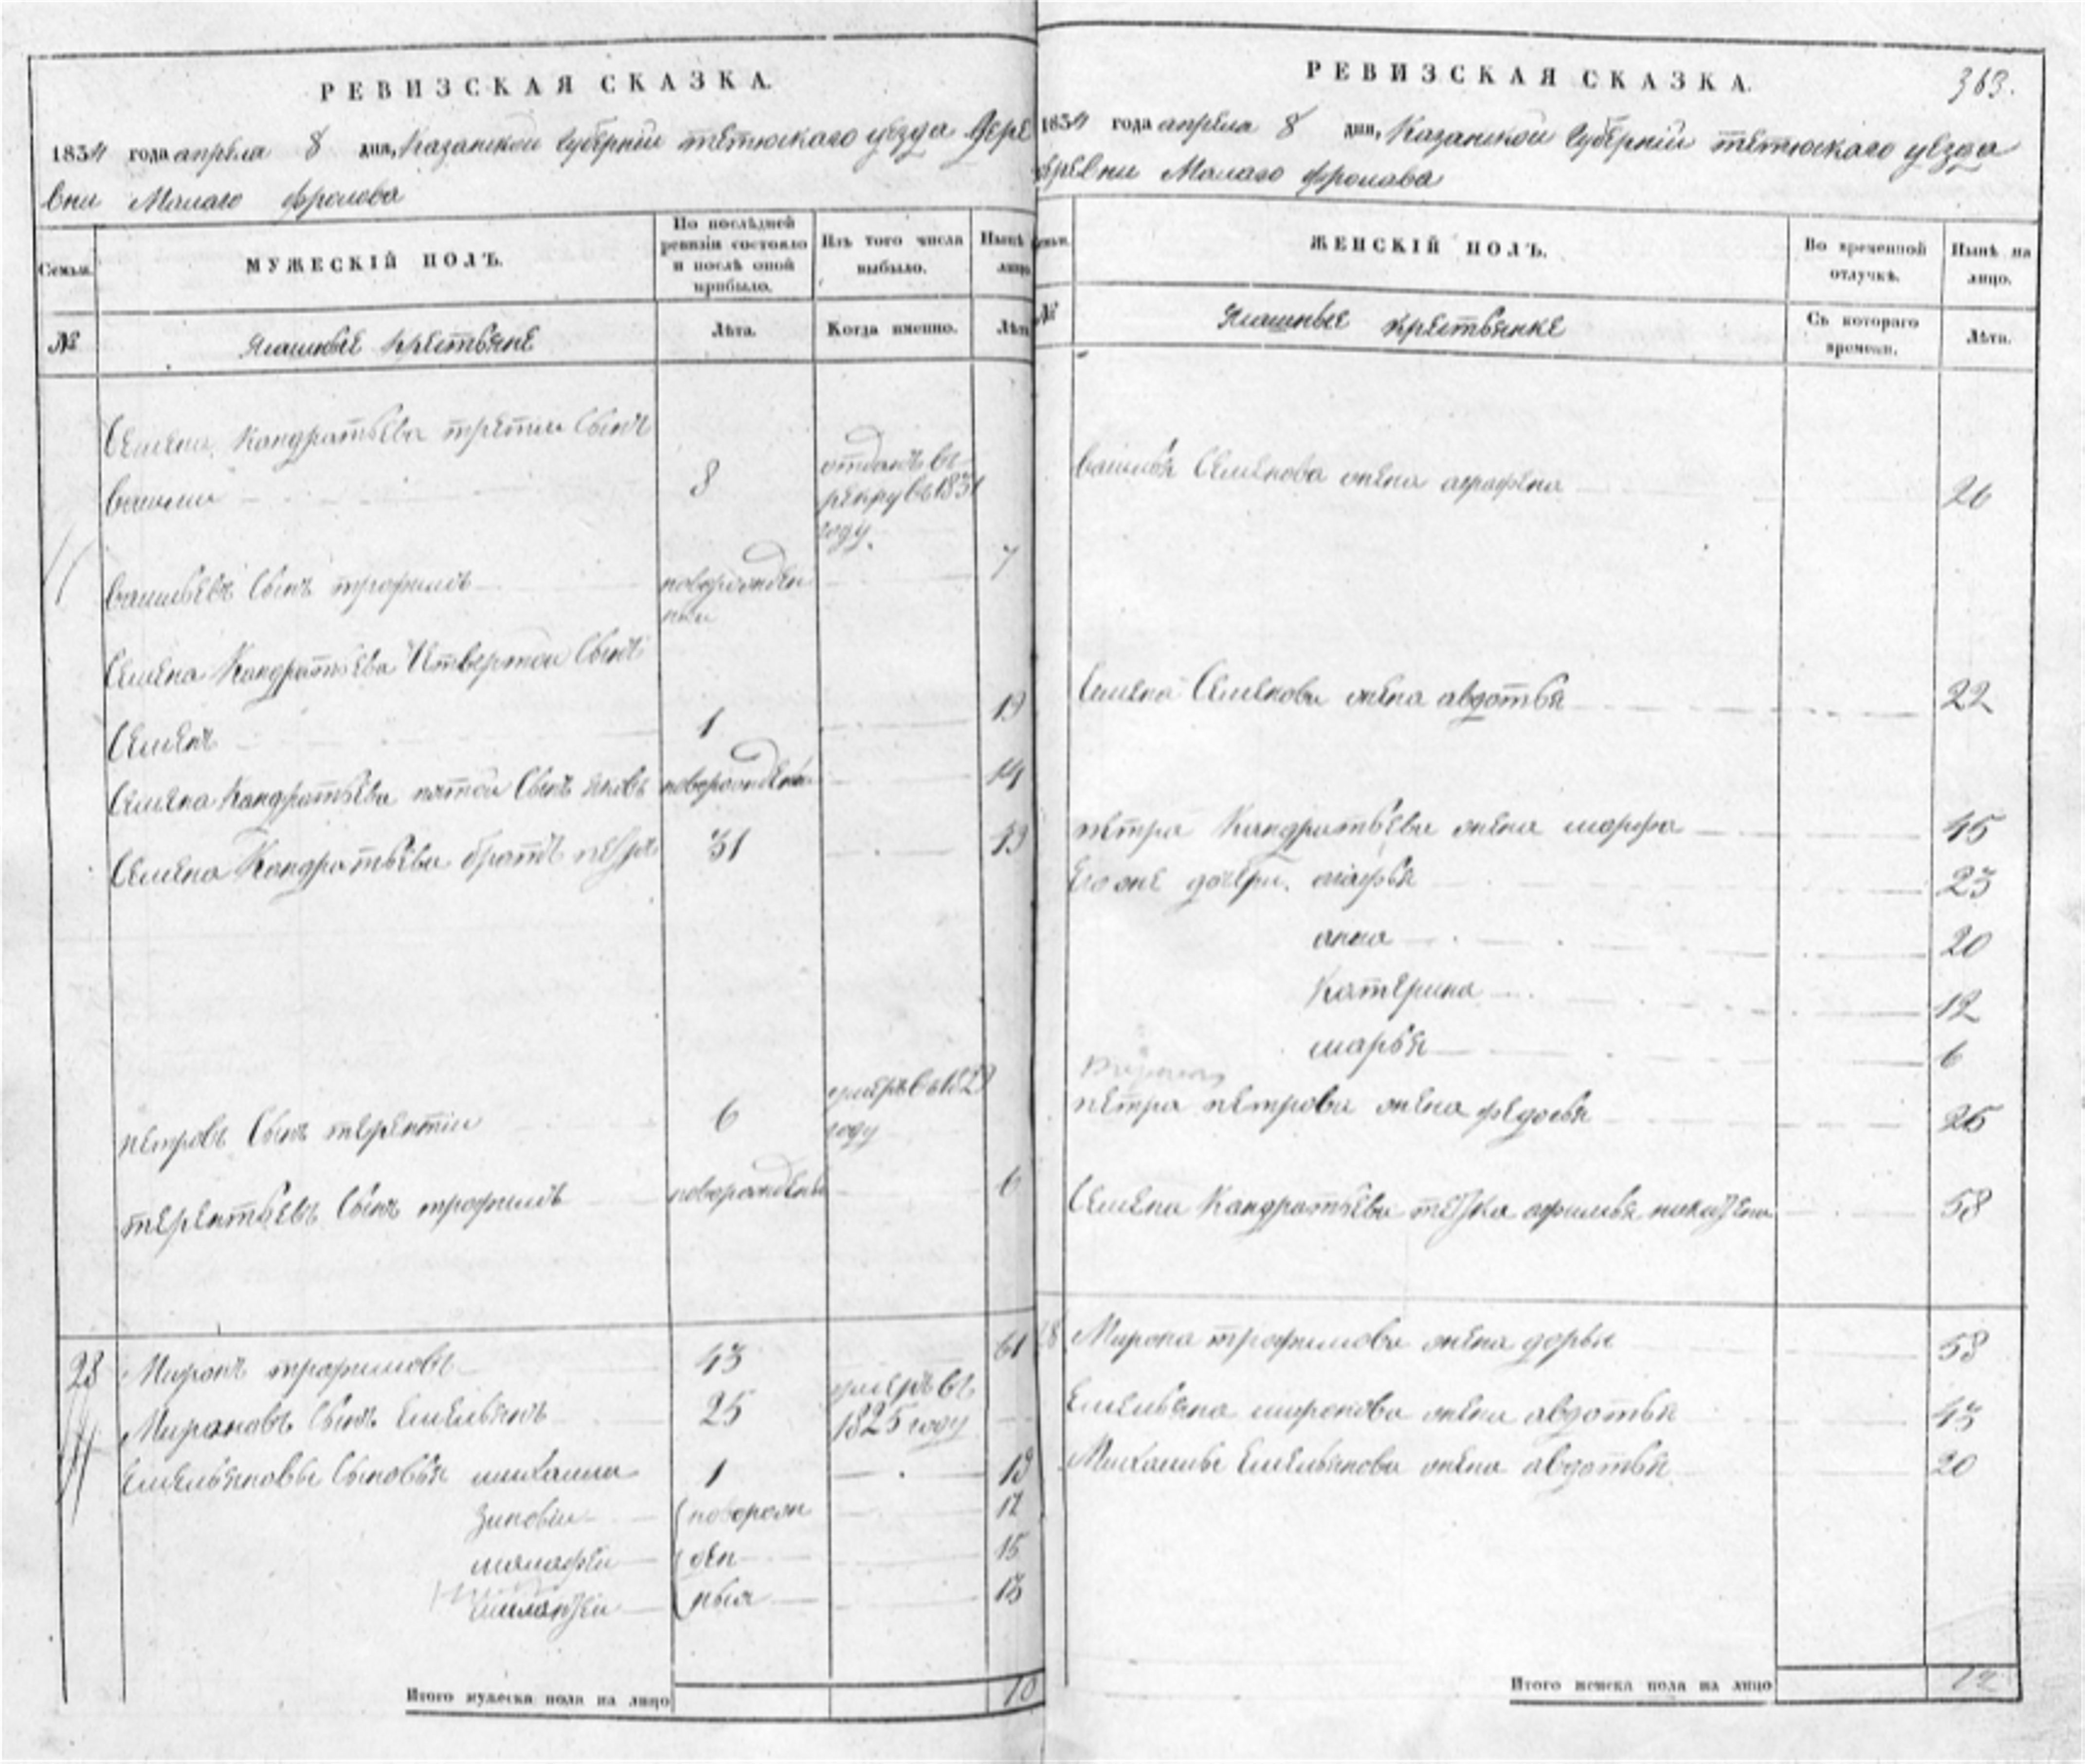 РЕВИЗСКАЯ СКАЗКА.
1834 года апреля 8 дня, Казанской губернии тетюскаго уезда дере
вни Малаго фролова
Семьи.
МУЖЕСКІЙ ПОЛЪ.
По послѣдней ревизіи состояло и послѣ оной прибыло.
Изъ того числа выбыло.
Нынѣ на лицо.
№
Ясашные крестьяне
Лѣта.
Когда именно.
Лѣта
Семена Кандратьева третии сынъ
василии 8 отданъ въ рекру въ 1831 году.
васильевъ сынъ трофимъ новорожден ныи 7
Семена Кандратьева четвертои сынъ
Семенъ 1 19
Семена Кандратьева пятои сынъ яковъ новорожденъ 14
Семена Кандратьева братъ петръ 31 49
петровъ сынъ терентии 6 умеръ въ 1829 году
терентьевъ сынъ трофимъ новорожденъ 6
28 Миронъ трафимовъ 43 61
Мироновъ сынъ емельянъ 25 умеръ въ 1825 году
емельяновы сыновья михаила 1 19
зиновии новорож 17
малафеи ден 15
ныя 13
Итого мужеска пола на лицо 10
РЕВИЗСКАЯ СКАЗКА.
363.
1834 года апреля 8 дня, Казанской губернии тетюскаго уезда
деревни Малаго фролова
Семьи.
ЖЕНСКІЙ ПОЛЪ.
Во временной отлучкѣ.
Нынѣ на лицо.
№
Ясашные крестьянке
Съ котораго времени.
Лѣта.
василья Семенова жена аграфена 26
Семена Семенова жена авдотья 22
петра Кандратьева жена марфа 45
его же дочери. агафья 23
анна 20
Катерина 12
марья 6
петра петрова жена федосья 25
Семена Кандратьева тетка афимья 58
28 Мирона трофимова жена дарья 58
Емельяна миронова жена авдотья 43
Михаилы Емельянова жена авдотья 20
Итого женска пола на лицо 12